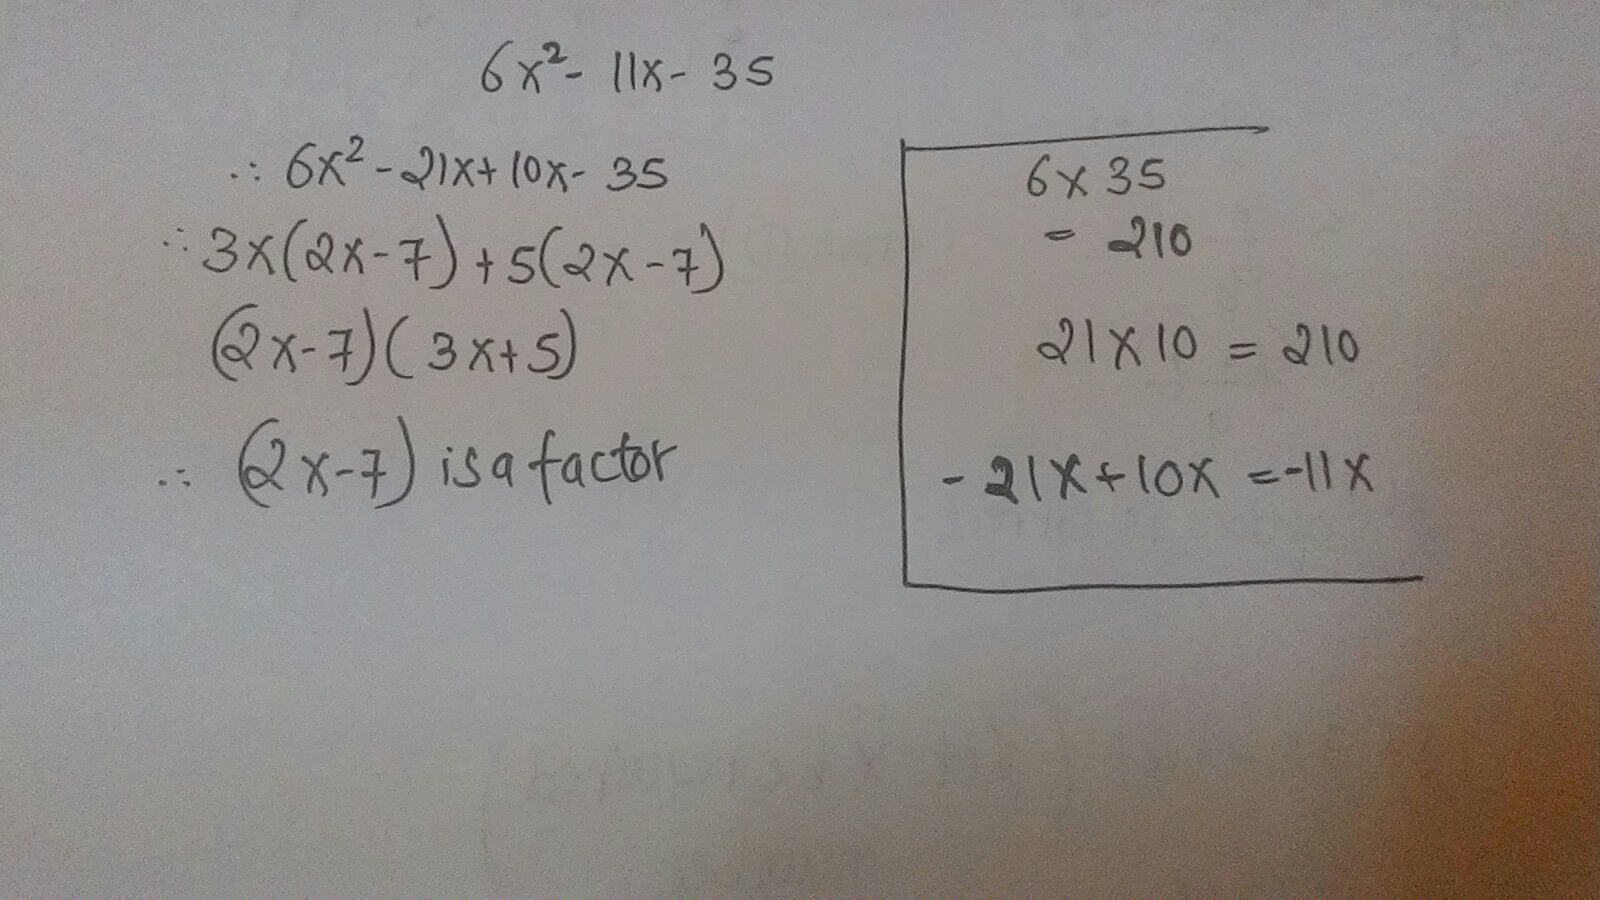 6x²- 11x- 35
∴ 6x²-21x+10x- 35
∴ 3x(2x-7)+5(2x-7)
(2x-7)(3x+5)
∴ (2x-7) is a factor
6x35
= 210
21x10 = 210
-21x+10x =-11x